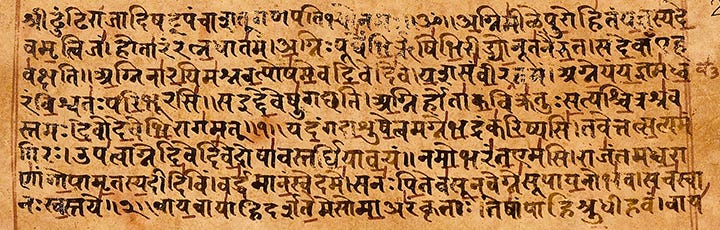 श्रीढुंढिराजादिषट्पंचाशद्गणपतिभ्योनमः॥ॐ॥अग्निमीळेपुरोहितंयज्ञस्यदे
वमृत्विजं।होतारंरत्नधातमं।अग्निःपूर्वेभिर्ऋषिभिरीड्योनूतनैरुत।सदेवाँएह
वक्षति॥अग्निनारयिमश्नवत्पोषमेवदिवेदिवे।यशसंवीरवत्तमं।अग्नेयंयज्ञमध्व
रंविश्वतःपरिभूरसि।सइद्देवेषुगच्छति।अग्निर्होताकविक्रतुःसत्यश्चित्रश्रव
स्तमः।देवोदेवेभिरागमत्॥१॥यदंगदाशुषेत्वमग्नेभद्रंकरिष्यसि।तवेत्तत्सत्यम
गिरः।उपत्वाग्नेदिवेदिवेदोषावस्तर्धियावयं।नमोभरंतएमसि।राजंतमध्वरा
णांगोपामृतस्यदीदिविं।वर्द्धमानंस्वेदमे।सनःपितेवसूनवेग्नेसूपायनोभव।सचस्वा
नःस्वस्तये॥२॥वायवायाहिदर्शतेमेसोमाअरंकृताः।तेषांपाहिश्रुधीहवं।वाय